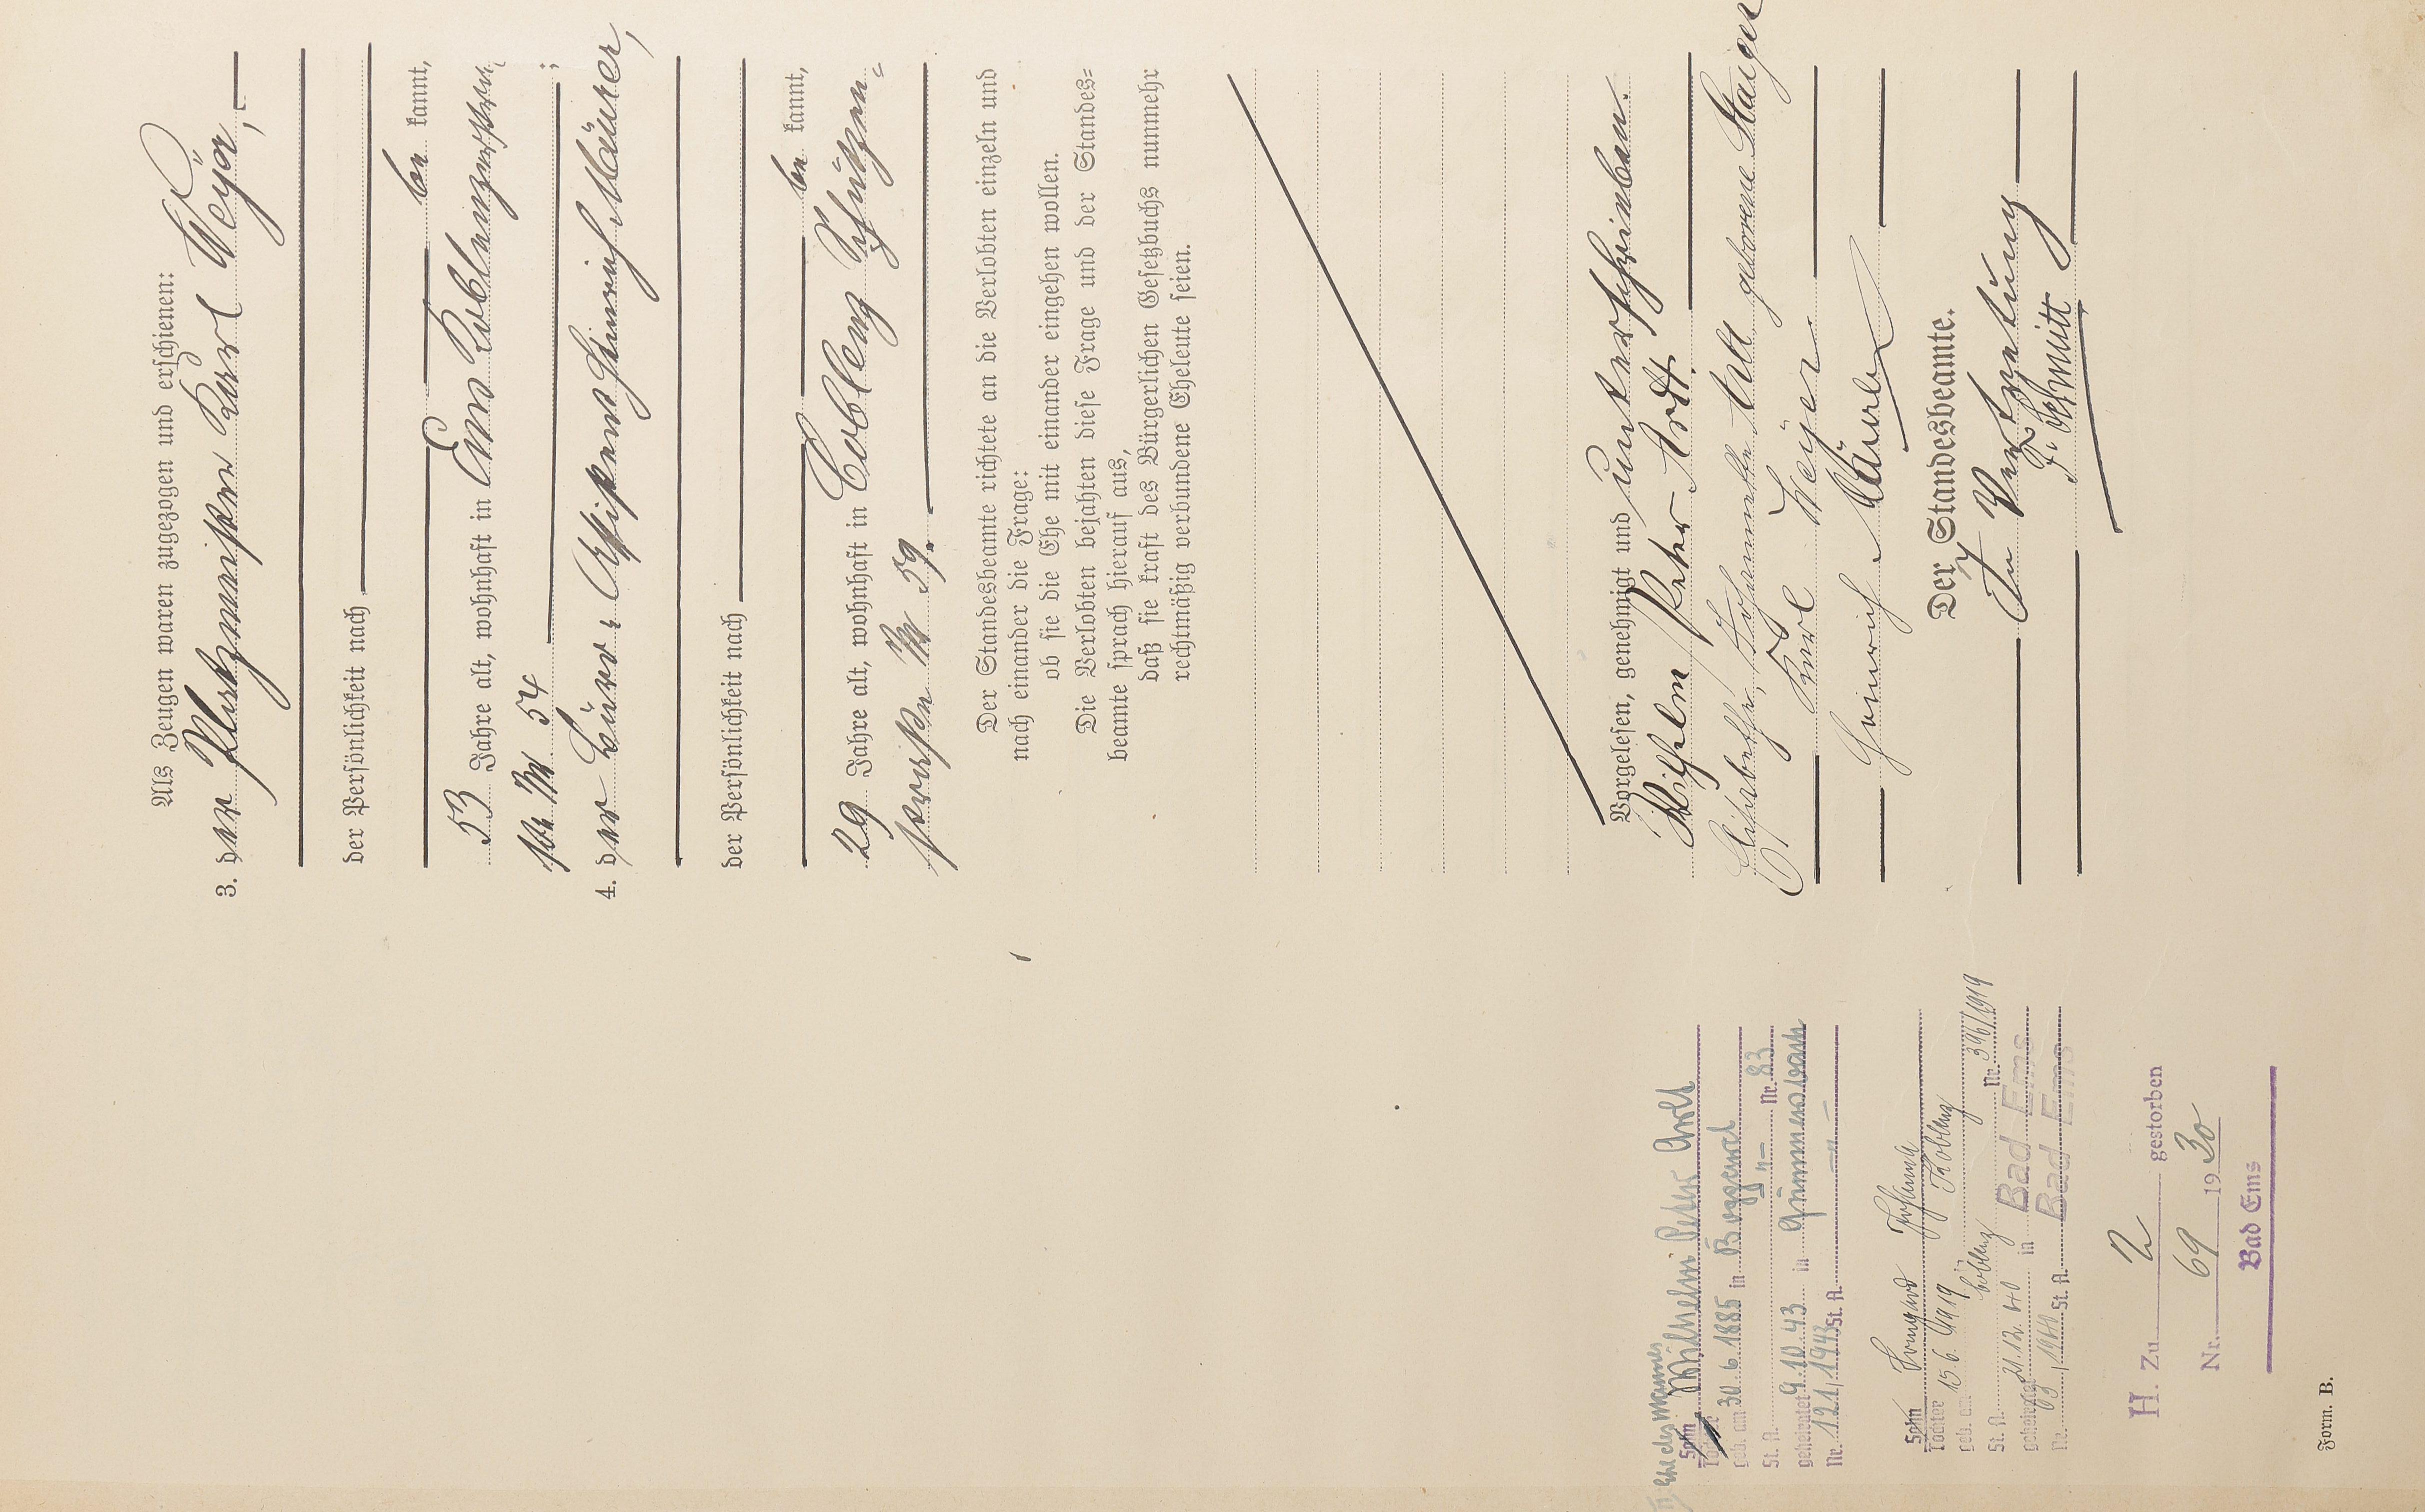 Als Zeugen waren zugezogen und erschienen:
3. der Platzmeister Karl Weyer,
der Persönlichkeit nach
be kannt,
53 Jahre alt, wohnhaft in Ems Coblenzerstra
ße № 54 ;
4. der Assistent Heinrich Mäurer,
der Persönlichkeit nach
be kannt,
29 Jahre alt, wohnhaft in Coblenz Schützen=
straße № 59.
Der Standesbeamte richtete an die Verlobten einzeln und
nach einander die Frage:
ob sie die Ehe mit einander eingehen wollen.
Die Verlobten bejahten diese Frage und der Standes=
beamte sprach hierauf aus,
daß sie kraft des Bürgerlichen Gesetzbuchs nunmehr
rechtmäßig verbundene Eheleute seien.
Vorgelesen, genehmigt und unterschrieben.
Wilhelm Peter Ardt.
Elisabetha Johannette geborene Staiger
Karl Weyer
Heinrich Mäurer
Der Standesbeamte.
In Vertretung
F. Schmitt
Ehe des Mannes
Sohn Wilhelm Peter
Tochter
geb. am 30.6.1885 in Boppard
St. A. -"- Nr. 83
geheiratet 9.10.43 in
Nr. 121/1943 St. A. -"-
Sohn Irmgard Johanna
Tochter
geb. am 15.6.1919 Koblenz
St. A. Coblenz Nr. 396/1919
geheiratet 21.12.40 in Bad Ems
Nr. /1940 St. A. Bad Ems
H. Zu 2 gestorben
Nr. 69 1930
Bad Ems
Form. B.